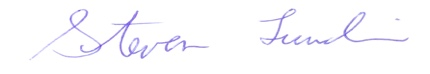 Steven Lundin